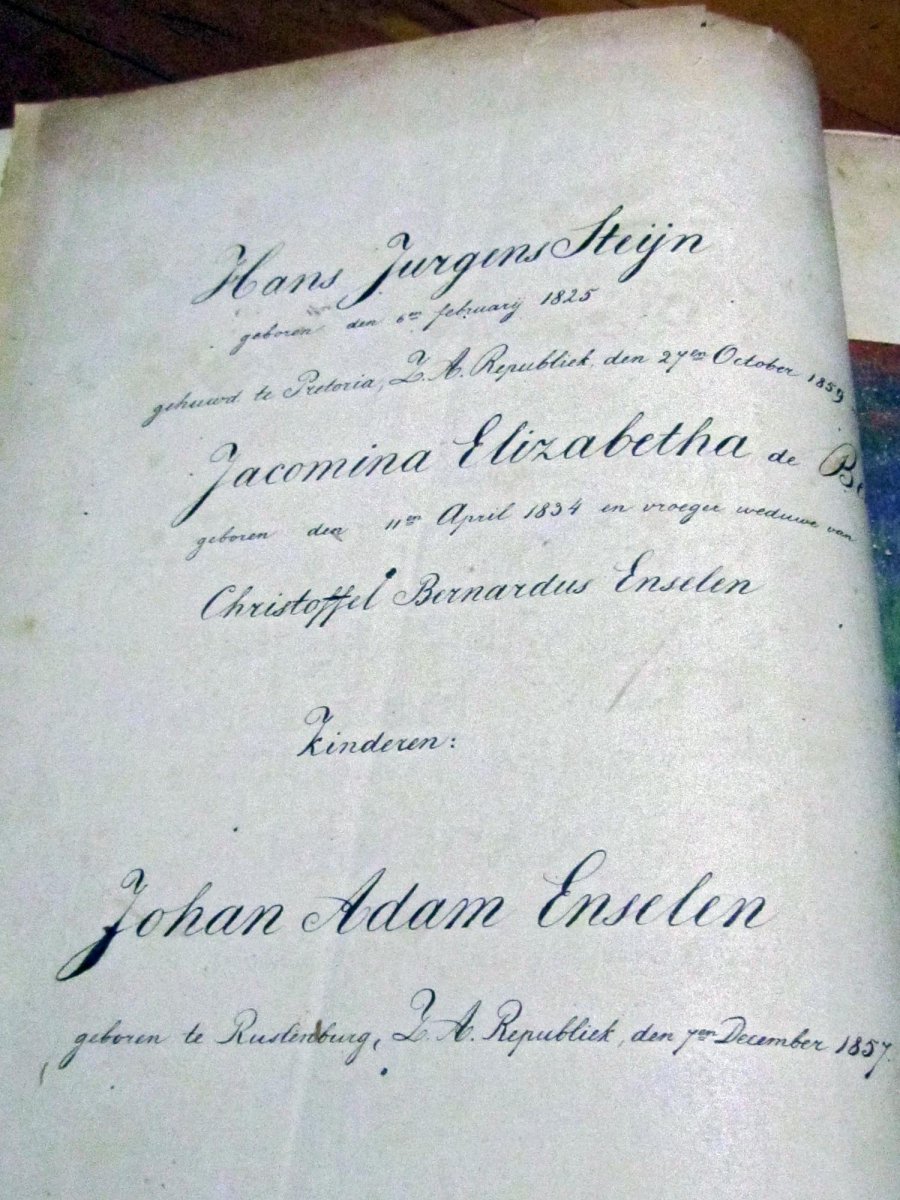 Hans Jurgens Steijn
geboren den 6en februarij 1825
gehuwd te Pretoria, Z. A. Republiek, den 27en October 1859
Jacomina Elizabetha de
geboren den 11en April 1834 en vroeger weduwe van
Christoffel Bernardus Enselen
Kinderen:
Johan Adam Enselen
geboren te Rustenburg, Z. A. Republiek, den 7en December 1857.